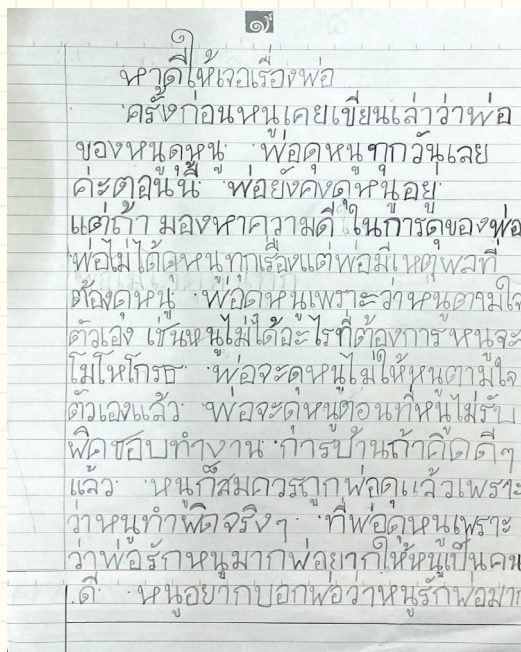 ๑
หาดีให้เจอเรื่องพ่อ
ครั้งก่อนหนูเคยเขียนเล่าว่าพ่อ
ของหนูดุหนู พ่อดุหนูทุกวันเลย
ค่ะตอนนี้ พ่อยังคงดุหนูอยู่
แต่ถ้า มองหาความดี ในการดุของพ่อ
พ่อไม่ได้ดุหนูทุกเรื่องแต่พ่อมีเหตุผลที่
ต้องดุหนู พ่อดุหนูเพราะว่าหนูตามใจ
ตัวเอง เช่นหนูไม่ได้อะไรที่ต้องการ หนูจะ
โมโหโกรธ พ่อจะดุหนูไม่ให้หนูตามใจ
ตัวเองแล้ว พ่อจะดุหนูตอนที่หนูไม่รับ
ผิดชอบทำงาน การบ้านถ้าคิดดีๆ
แล้ว หนูก็สมควรถูกพ่อดุแล้วเพราะ
ว่าหนูทำผิดจริงๆ ที่พ่อดุหนูเพราะ
ว่าพ่อรักหนูมากพ่อยากให้หนูเป็นคน
ดี หนูอยากบอกพ่อว่าหนูรักพ่อมาก